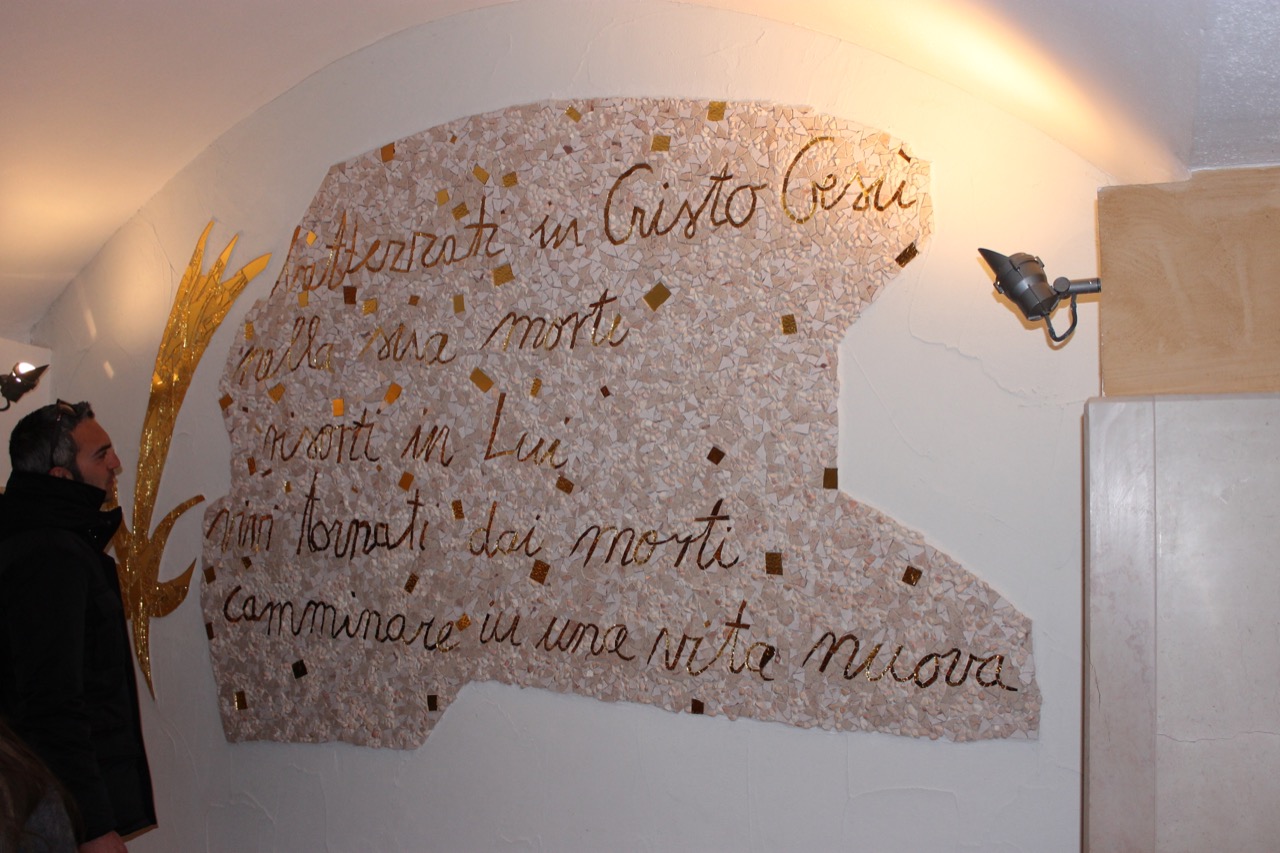 battezzati in Cristo Gesù
nella sua morte
risorti in Lui
vivi tornati dai morti
camminare in una vita nuova